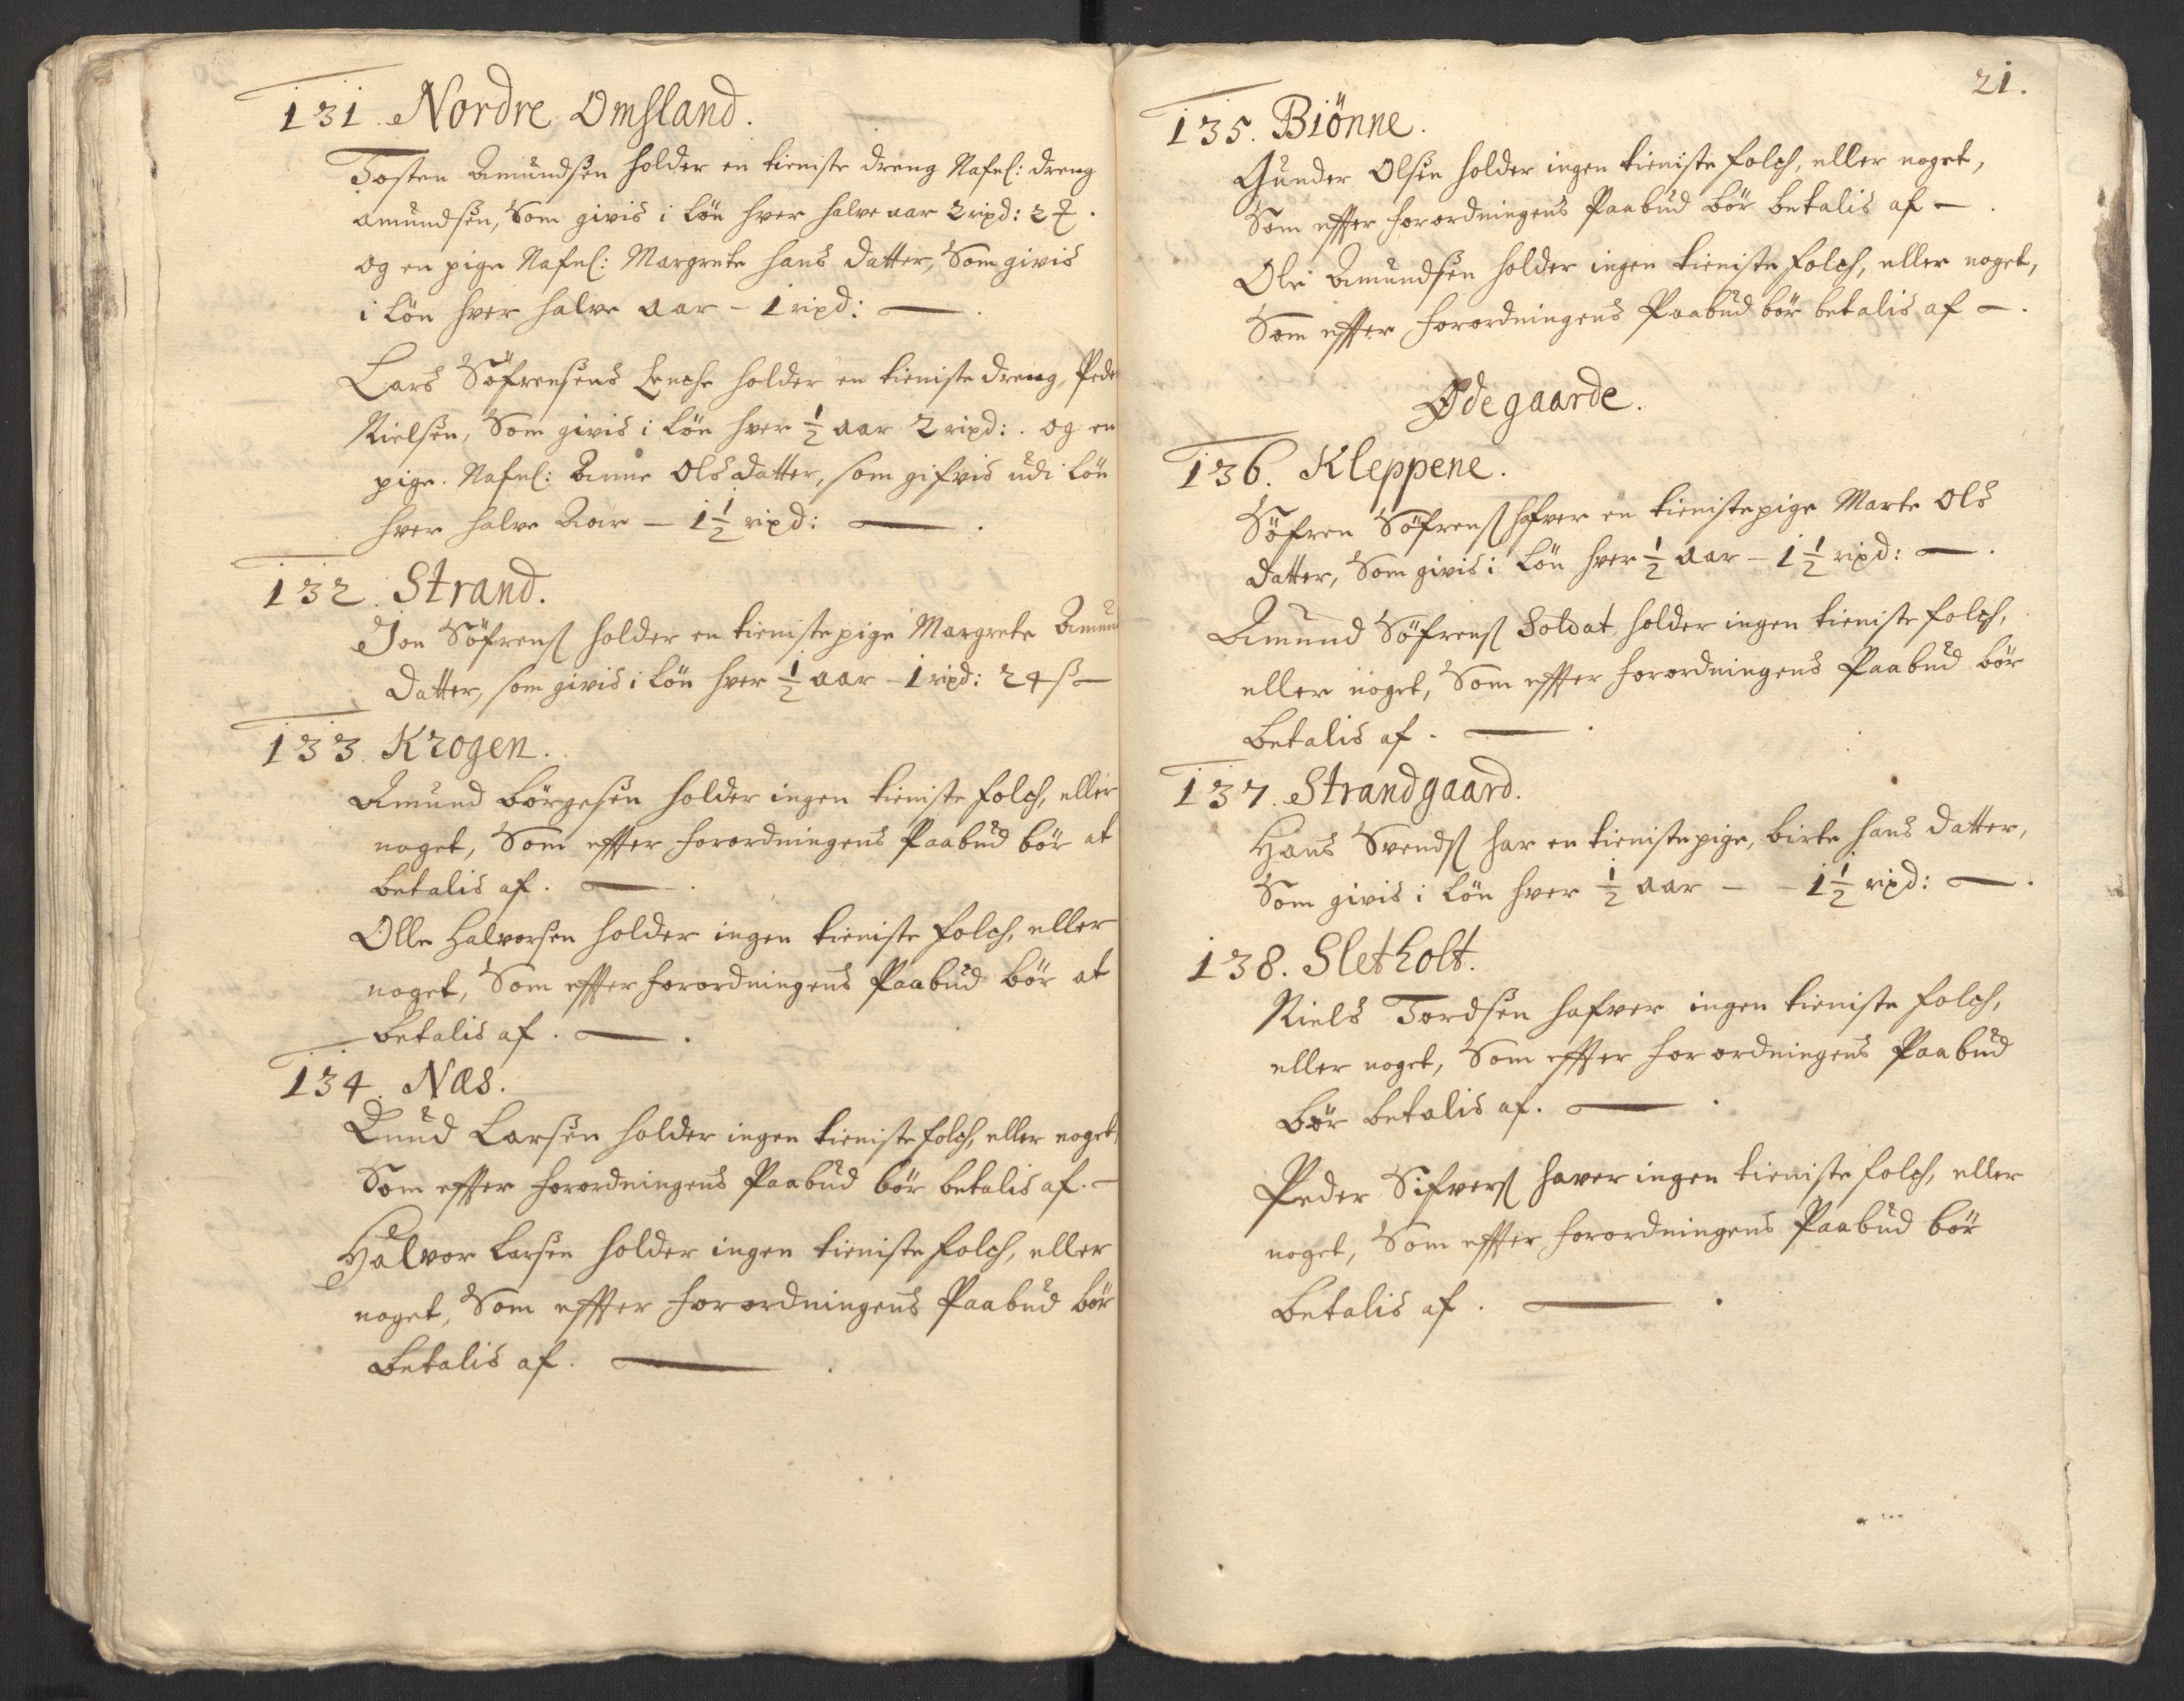 131. Nordre Omsland.
Tosten Amundsen holder en tieniste dreng Nafnl: dreng
amundsen, Som givis i Løn hver halve aar 2 rixd: 2
og en pige Nafnl: Margrete hans datter, Som givis
i Løn hver halve aar - 1 rixd: —
Lars Söfrensens Enche holder en tieniste dreng, Peder
Nielsen, Som givis i Løn hver ½ aar 2 rixd: . og en
pige. Nafnl: Anne Ols datter, som gifvis udi Løn
hver halve Aar — 1½ rixd: — .
132. Strand.
Jon Söfrens holder en tieniste pige Margrete Amund
datter, som givis i Løn hver ½ aar - 1 rixd: 24 ß —
133. Krogen.
Amund Börgesen holder ingen tieniste folch, eller
noget, Som effter forordningens Paabud bör at
betalis af . — .
Olle Halvorsen holder ingen tieniste folch, eller
noget, Som effter forordningens Paabud bör at
betalis af . — .
134. Næs.
Knud Larsen holder ingen tieniste folch, eller noget
Som effter forordningens Paabud bör betalis af. —
Halvor Larsen holder ingen tieniste folch, eller
noget, Som effter forordningens Paabud bör
betalis af . — .
21.
135. Biönne.
Gunder Olsen holder ingen tieniste folch, eller noget,
Som effter forordningens Paabud bör betalis af — .
Ole Amundsen holder ingen tieniste folch, eller noget,
Som effter forordningens Paabud bör betalis af — .
Ødegaarde.
136. Kleppene.
Söfren Söfrens hafver en tieniste pige Marte Ols
datter, Som givis i Løn hver ½ aar - 1½ rixd: — .
Amund Söfrens Soldat holder ingen tieniste folch,
eller noget, Som effter forordningens Paabud bör
betalis af . — .
137. Strandgaard.
Hans Svends har en tieniste pige, birte hans datter,
Som givis i Løn hver ½ aar - - 1½ rixd: — .
138. Sletholt.
Niels Tordsen hafver ingen tieniste folch,
eller noget, Som effter forordningens Paabud
bör betalis af. — .
Peder Sifvers haver ingen tieniste folch, eller
noget, Som effter forordningens Paabud bör
betalis af . — .